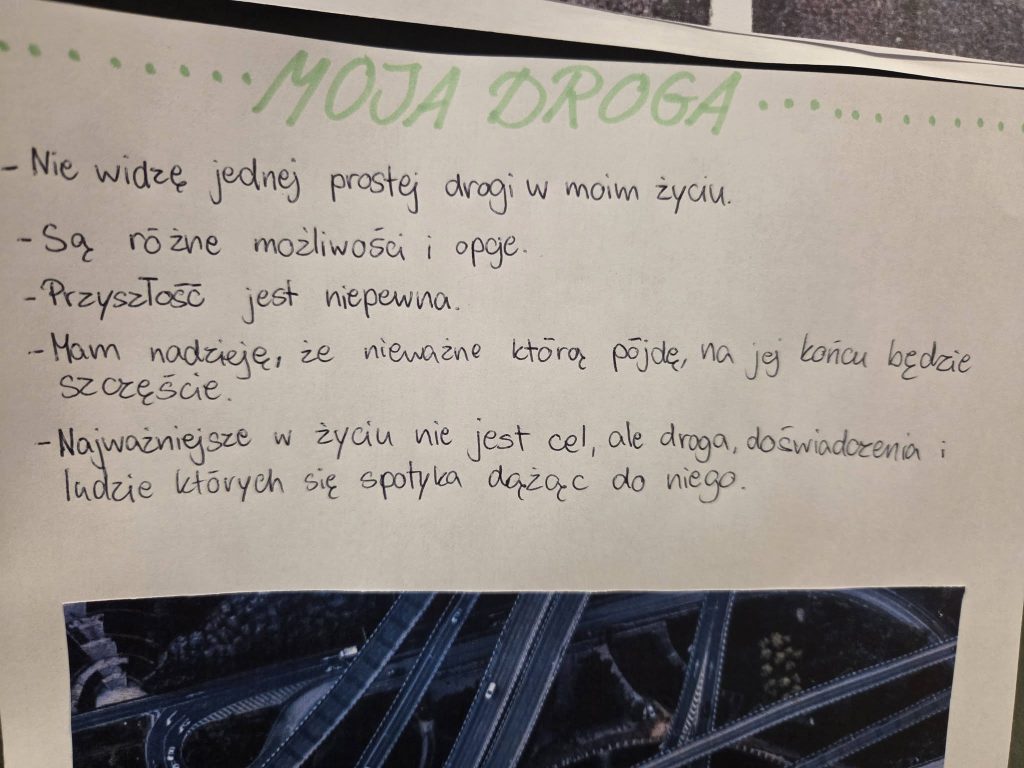 MOJA DROGA
- Nie widzę jednej prostej drogi w moim życiu.
- Są różne możliwości i opcje.
- Przyszłość jest niepewna.
- Mam nadzieję, że nieważne którą pójdę, na jej końcu będzie
szczęście.
- Najważniejsze w życiu nie jest cel, ale droga, doświadczenia i
ludzie których się spotyka dążąc do niego.